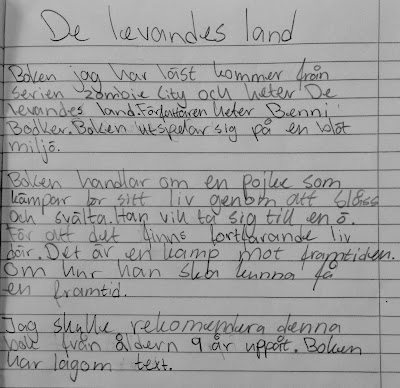 De levandes land
Boken jag har läst kommer från
serien zombie city och heter De
levandes land. Författaren heter Benni
Bødker. Boken utspelar sig på en blöt
miljö.
Boken handlar om en pojke som
kämpar för sitt liv genom att slåss
och svälta. Han vill ta sig till en ö.
För att det finns fortfarande liv
där. Det är en kamp mot framtiden.
Om hur han ska kunna få
en framtid.
Jag skulle rekomendera denna
bok från åldern 9 år uppåt. Boken
har lagom text.